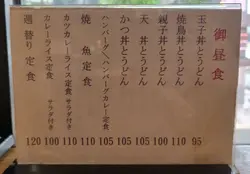 御昼食
玉子丼とうどん 95
焼鳥丼とうどん 110
親子丼とうどん 100
天 丼とうどん 105
かつ丼とうどん 105
ハンバーグ/ハンバーグカレー定食 105
焼 魚 定食 110
カツカレーライス定食 サラダ付き 110
カレーライス定食 サラダ付き 100
週替り定食 120